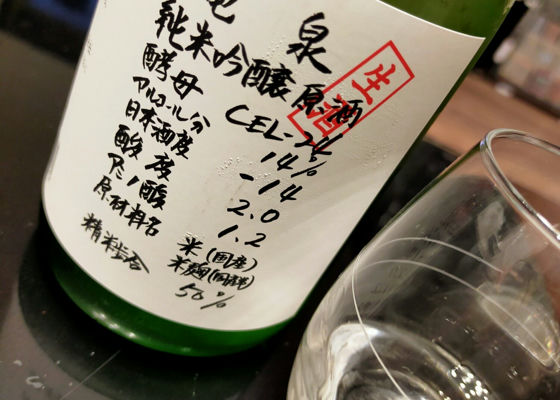 泉
純米吟醸原酒
生酒
酵母 CEL-24
アルコール分 14%
日本酒度 -14
酸度 2.0
アミノ酸 1.2
原材料名 米(国産)
米麹(国産米)
精米歩合 50%